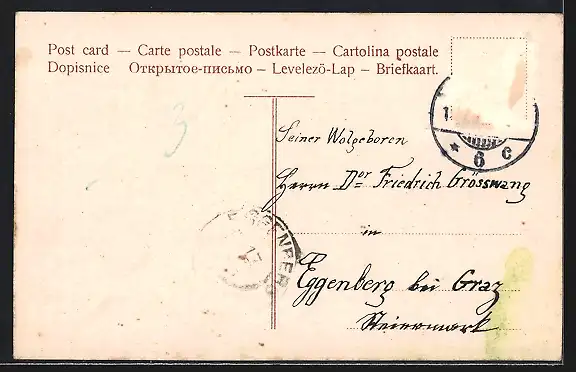 Post card — Carte postale — Postkarte — Cartolina postale
Dopisnice Открытое-письмо – Levelező-Lap – Briefkaart.
3
Seiner Wolgeboren
Herrn Dor Friedrich Grösswang
in
Eggenberg bei Graz
Steiermark
EGGENBERG
17
1
* 6 c